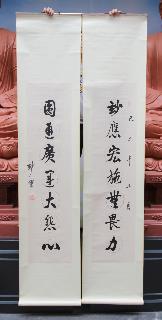 妙應宏施無畏力
圓通廣運大慈心